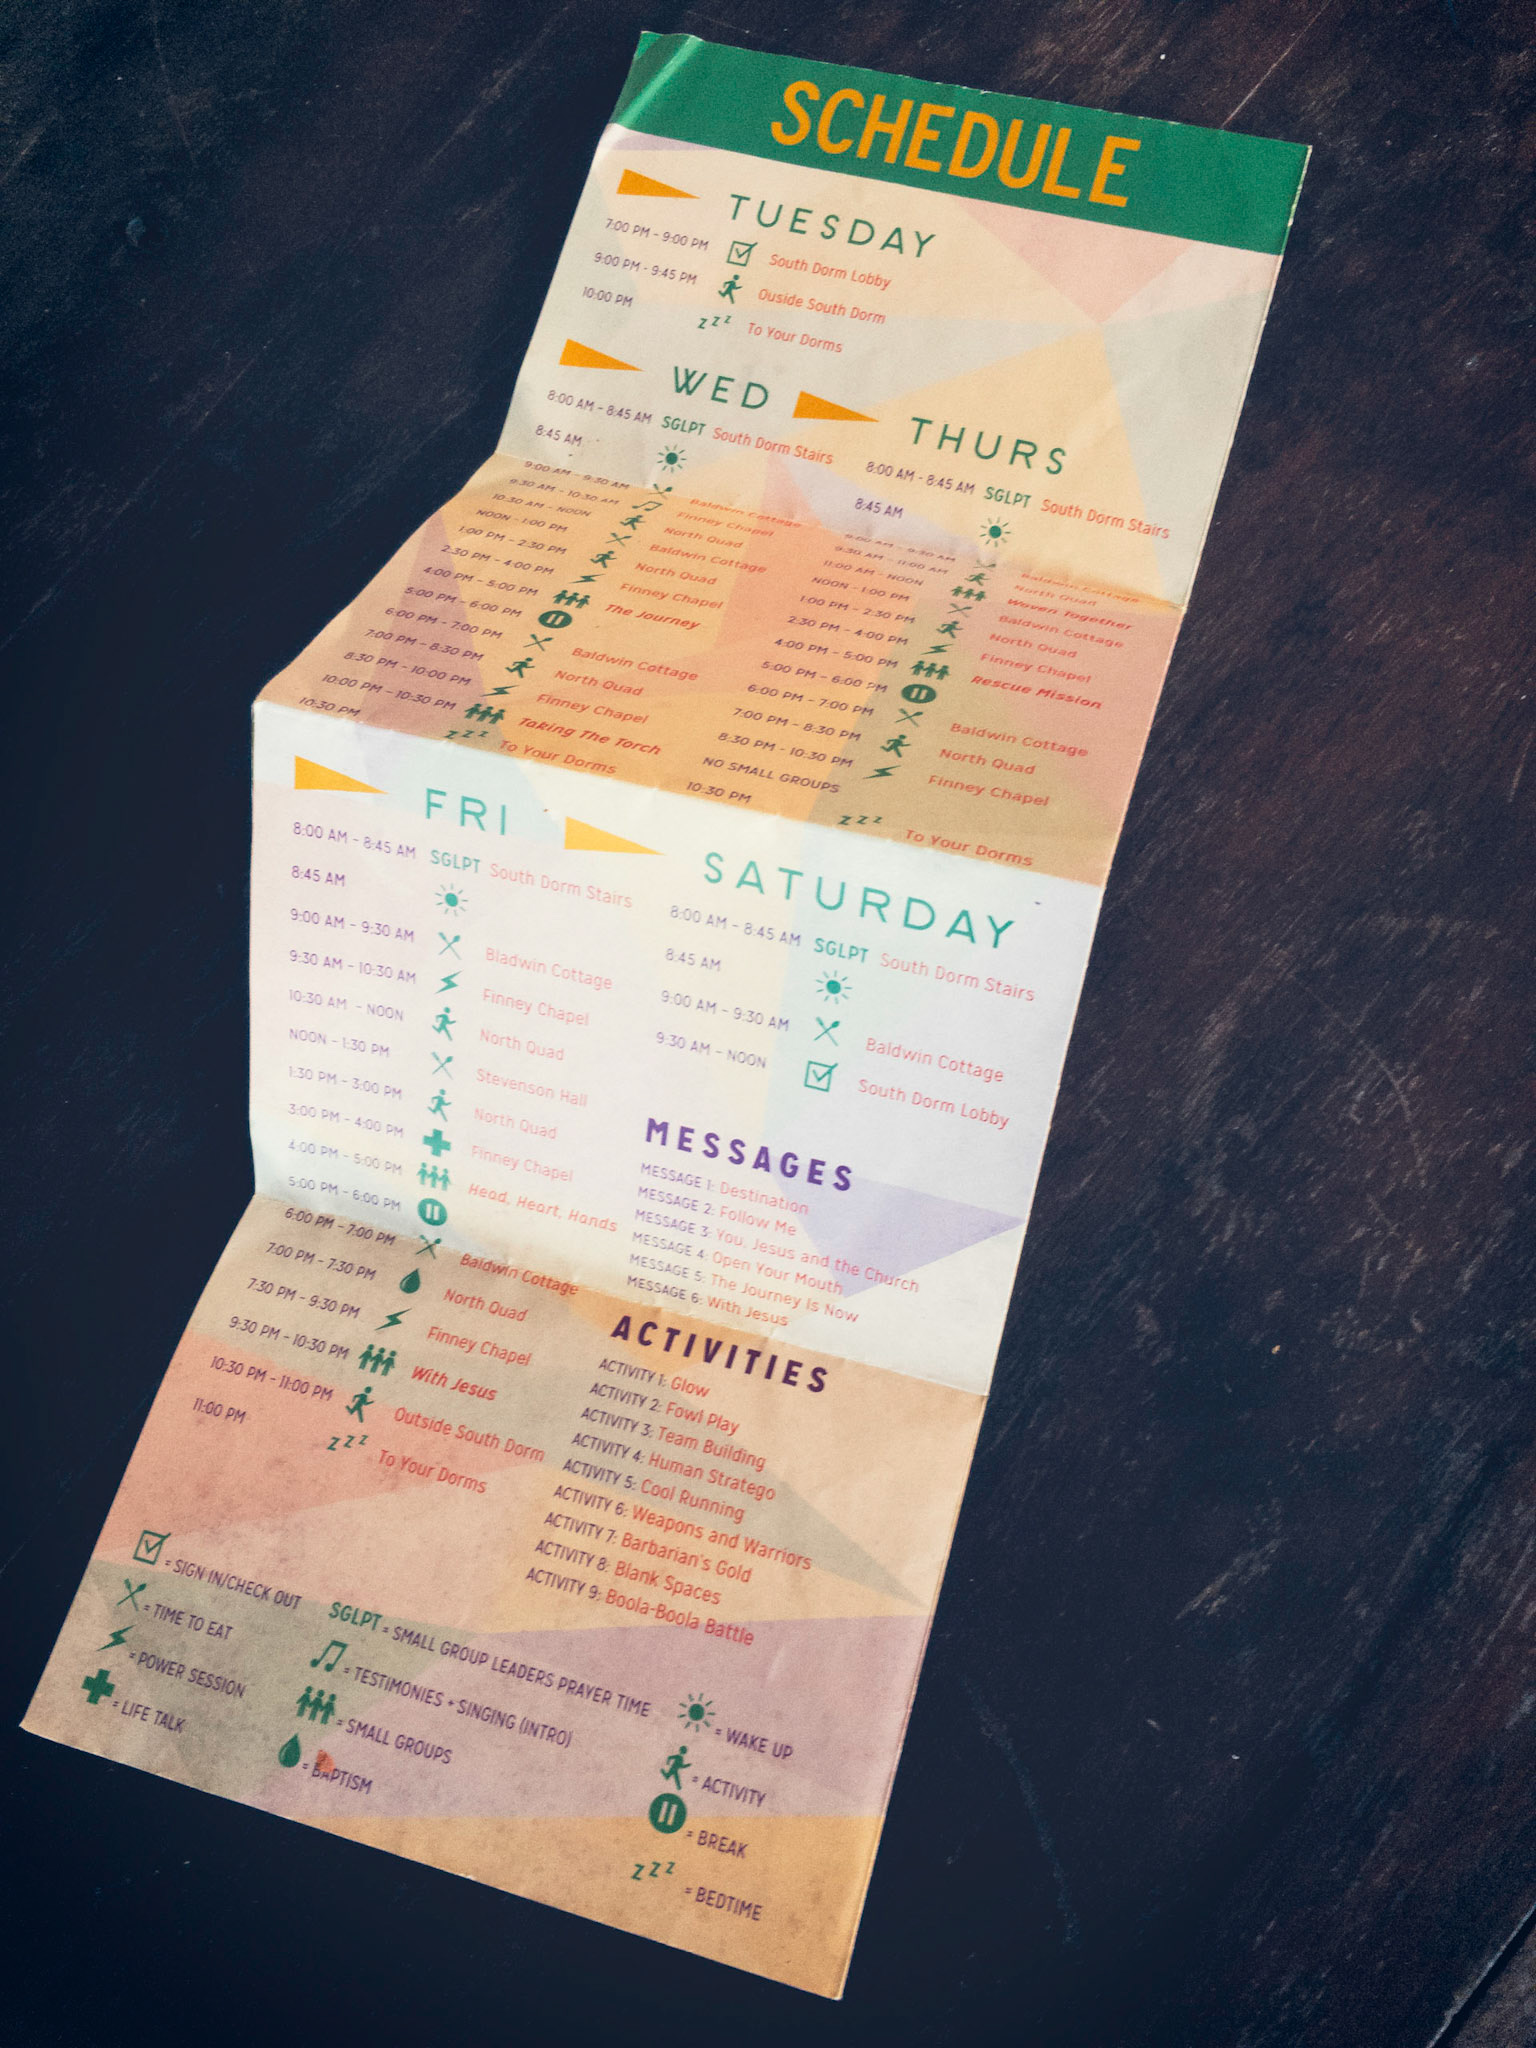 SCHEDULE
TUESDAY
7:00 PM - 9:00 PM South Dorm Lobby
9:00 PM - 9:45 PM Ouside South Dorm
10:00 PM zzz To Your Dorms
WED
8:00 AM - 8:45 AM SGLPT South Dorm Stairs
8:45 AM
9:00 AM - 9:30 AM Baldwin Cottage
9:30 AM - 10:30 AM Finney Chapel
10:30 AM - NOON North Quad
NOON - 1:00 PM Baldwin Cottage
1:00 PM - 2:30 PM North Quad
2:30 PM - 4:00 PM Finney Chapel
4:00 PM - 5:00 PM The Journey
5:00 PM - 6:00 PM
6:00 PM - 7:00 PM Baldwin Cottage
7:00 PM - 8:30 PM North Quad
8:30 PM - 10:00 PM Finney Chapel
10:00 PM - 10:30 PM Taking The Torch
10:30 PM zzz To Your Dorms
THURS
8:00 AM - 8:45 AM SGLPT South Dorm Stairs
8:45 AM
9:00 AM - 9:30 AM Baldwin Cottage
9:30 AM - 11:00 AM North Quad
11:00 AM - NOON Woven Together
NOON - 1:00 PM Baldwin Cottage
1:00 PM - 2:30 PM North Quad
2:30 PM - 4:00 PM Finney Chapel
4:00 PM - 5:00 PM Rescue Mission
5:00 PM - 6:00 PM
6:00 PM - 7:00 PM Baldwin Cottage
7:00 PM - 8:30 PM North Quad
8:30 PM - 10:30 PM Finney Chapel
NO SMALL GROUPS
10:30 PM zzz To Your Dorms
FRI
8:00 AM - 8:45 AM SGLPT South Dorm Stairs
8:45 AM
9:00 AM - 9:30 AM Bladwin Cottage
9:30 AM - 10:30 AM Finney Chapel
10:30 AM - NOON North Quad
NOON - 1:30 PM Stevenson Hall
1:30 PM - 3:00 PM North Quad
3:00 PM - 4:00 PM Finney Chapel
4:00 PM - 5:00 PM Head, Heart, Hands
5:00 PM - 6:00 PM
6:00 PM - 7:00 PM Baldwin Cottage
7:00 PM - 7:30 PM North Quad
7:30 PM - 9:30 PM Finney Chapel
9:30 PM - 10:30 PM With Jesus
10:30 PM - 11:00 PM Outside South Dorm
11:00 PM zzz To Your Dorms
SATURDAY
8:00 AM - 8:45 AM SGLPT South Dorm Stairs
8:45 AM
9:00 AM - 9:30 AM Baldwin Cottage
9:30 AM - NOON South Dorm Lobby
MESSAGES
MESSAGE 1: Destination
MESSAGE 2: Follow Me
MESSAGE 3: You, Jesus and the Church
MESSAGE 4: Open Your Mouth
MESSAGE 5: The Journey Is Now
MESSAGE 6: With Jesus
ACTIVITIES
ACTIVITY 1: Glow
ACTIVITY 2: Fowl Play
ACTIVITY 3: Team Building
ACTIVITY 4: Human Stratego
ACTIVITY 5: Cool Running
ACTIVITY 6: Weapons and Warriors
ACTIVITY 7: Barbarian's Gold
ACTIVITY 8: Blank Spaces
ACTIVITY 9: Boola-Boola Battle
= SIGN IN/CHECK OUT
= TIME TO EAT
= POWER SESSION
= LIFE TALK
SGLPT = SMALL GROUP LEADERS PRAYER TIME
= TESTIMONIES + SINGING (INTRO)
= SMALL GROUPS
= BAPTISM
= WAKE UP
= ACTIVITY
= BREAK
zzz = BEDTIME